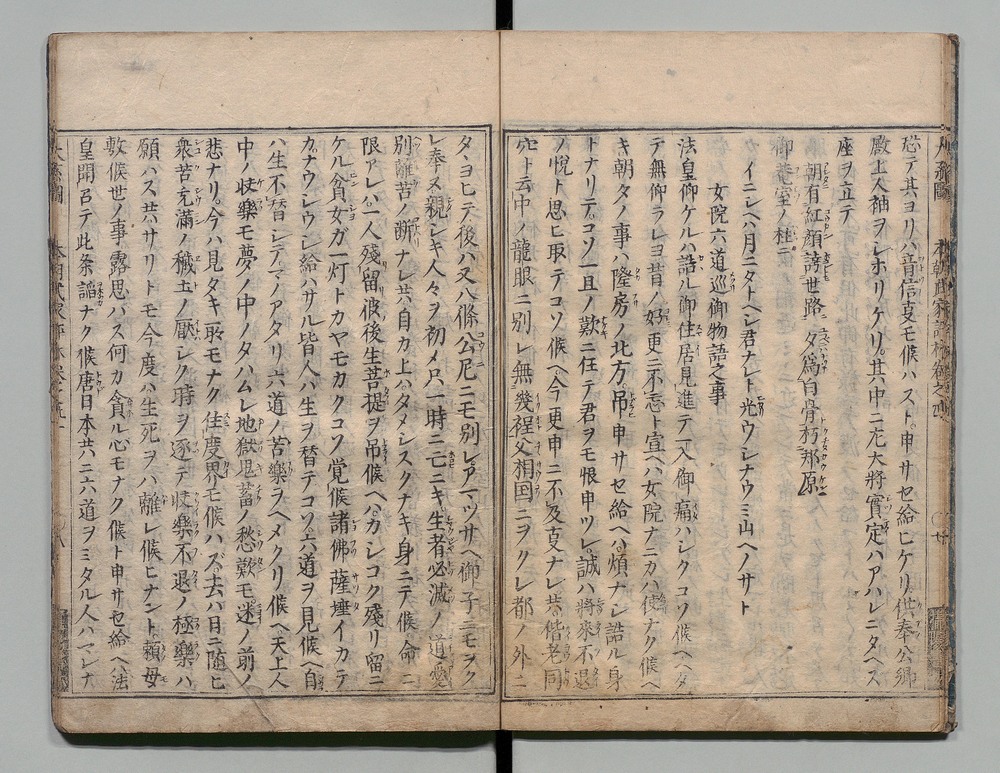 恐テ其ヨリハ音信叓モ候ハスト申サセ給ヒケリ供奉公卿
殿上人袖ヲシホリケリ其中ニ左大將實定ハアハレニタヘス
座ヲ立テ
朝有紅顔誇世路夕爲白骨朽郊原
御菴室ノ柱ニ
イニシヘハ月ニタトヘシ君ナレト光ウシナウミ山ヘノサト
女院六道巡御物語之事
法皇仰ケルハ諮ル御住居見進テ一入御痛ハシクコソ候ヘヘタ
テ無仰ラレヨ昔ノ好更ニ不忘ト宣ヘハ女院ナニカハ使ナク候ヘ
キ朝タノ事ハ隆房ノ北方吊申サセ給ヘハ煩ナシ諮ル身
トナリテコソ一旦ノ歎ニ任テ君ヲモ恨申ツレ誠ハ將來不退
ノ悦ト思ヒ取テコソ候ヘ今更申ニ不及叓ナレ共偕老同
穴ト云中ノ龍眼ニ別レ無幾程父相国ニヲクレ都ノ外ニ
タヽヨヒテ後ハ又八條ノ公尼ニモ別レアマツサヘ御子ニモヲク
レ奉メ親シキ人々ヲ初メ只一時ニ亡ニキ生者必滅ノ道愛
別離苦ノ斷ナレ共自カ上ハタメシスクナキ身ニテ候命ニ
限アレハ一人殘留彼後生菩提ヲ吊候ヘハカシコク殘リ留ニ
ケル貧女ガ一灯トカヤモカクコソ覚候諸佛薩埵イカテ
カナウシウシ給ハサル皆人ハ生ヲ替テコソ六道ヲ見候ヘ自
ハ生不替シテマノアタリ六道ノ苦樂ヲヘメクリ候ヘ天上人
中ノ快樂モ夢ノ中ノタハムレ地獄鬼畜ノ愁歎モ迷ノ前ノ
悲ナリ今ハ見タキ所モナク住度界モ候ハス去ハ日ニ随ヒ
衆苦充滿ノ穢土ノ厭シク時ヲ逐テ快樂不退ノ極樂ハ
願ハス共サリトモ今度ハ生死ヲハ離レ候ヒナント頼母
敷候世ノ事露思ハス何カ貪ル心モナク候ト申サセ給ヘハ法
皇聞召テ此条謟ナク候唐日本共ニ六道ヲミタル人ハマレナ